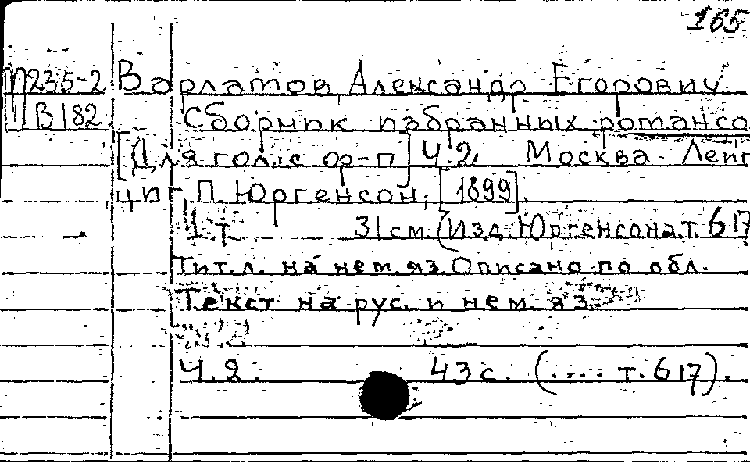 165
П235-2 Варламов, Александр Егорович
В182 Сборник избранных романсо
[Для гол. с ф-п] Ч. 2. Москва - Лейп
циг, П. Юргенсон, [1899].
1 т. 31 см. (Изд. Юргенсона т. 617
Тит. л. на нем. яз. Описано по обл.
Текст на рус. и нем. яз.
Ч. 2. 43 с. (.... т. 617).